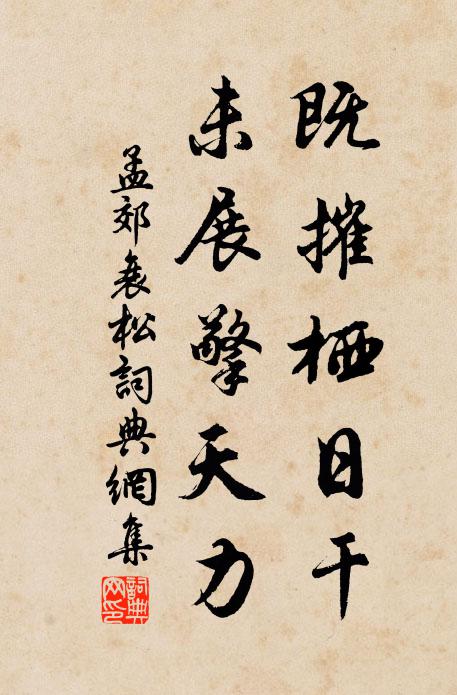 既摧栖日干
未展擎天力
孟郊衰松詞典網集
詞典网印